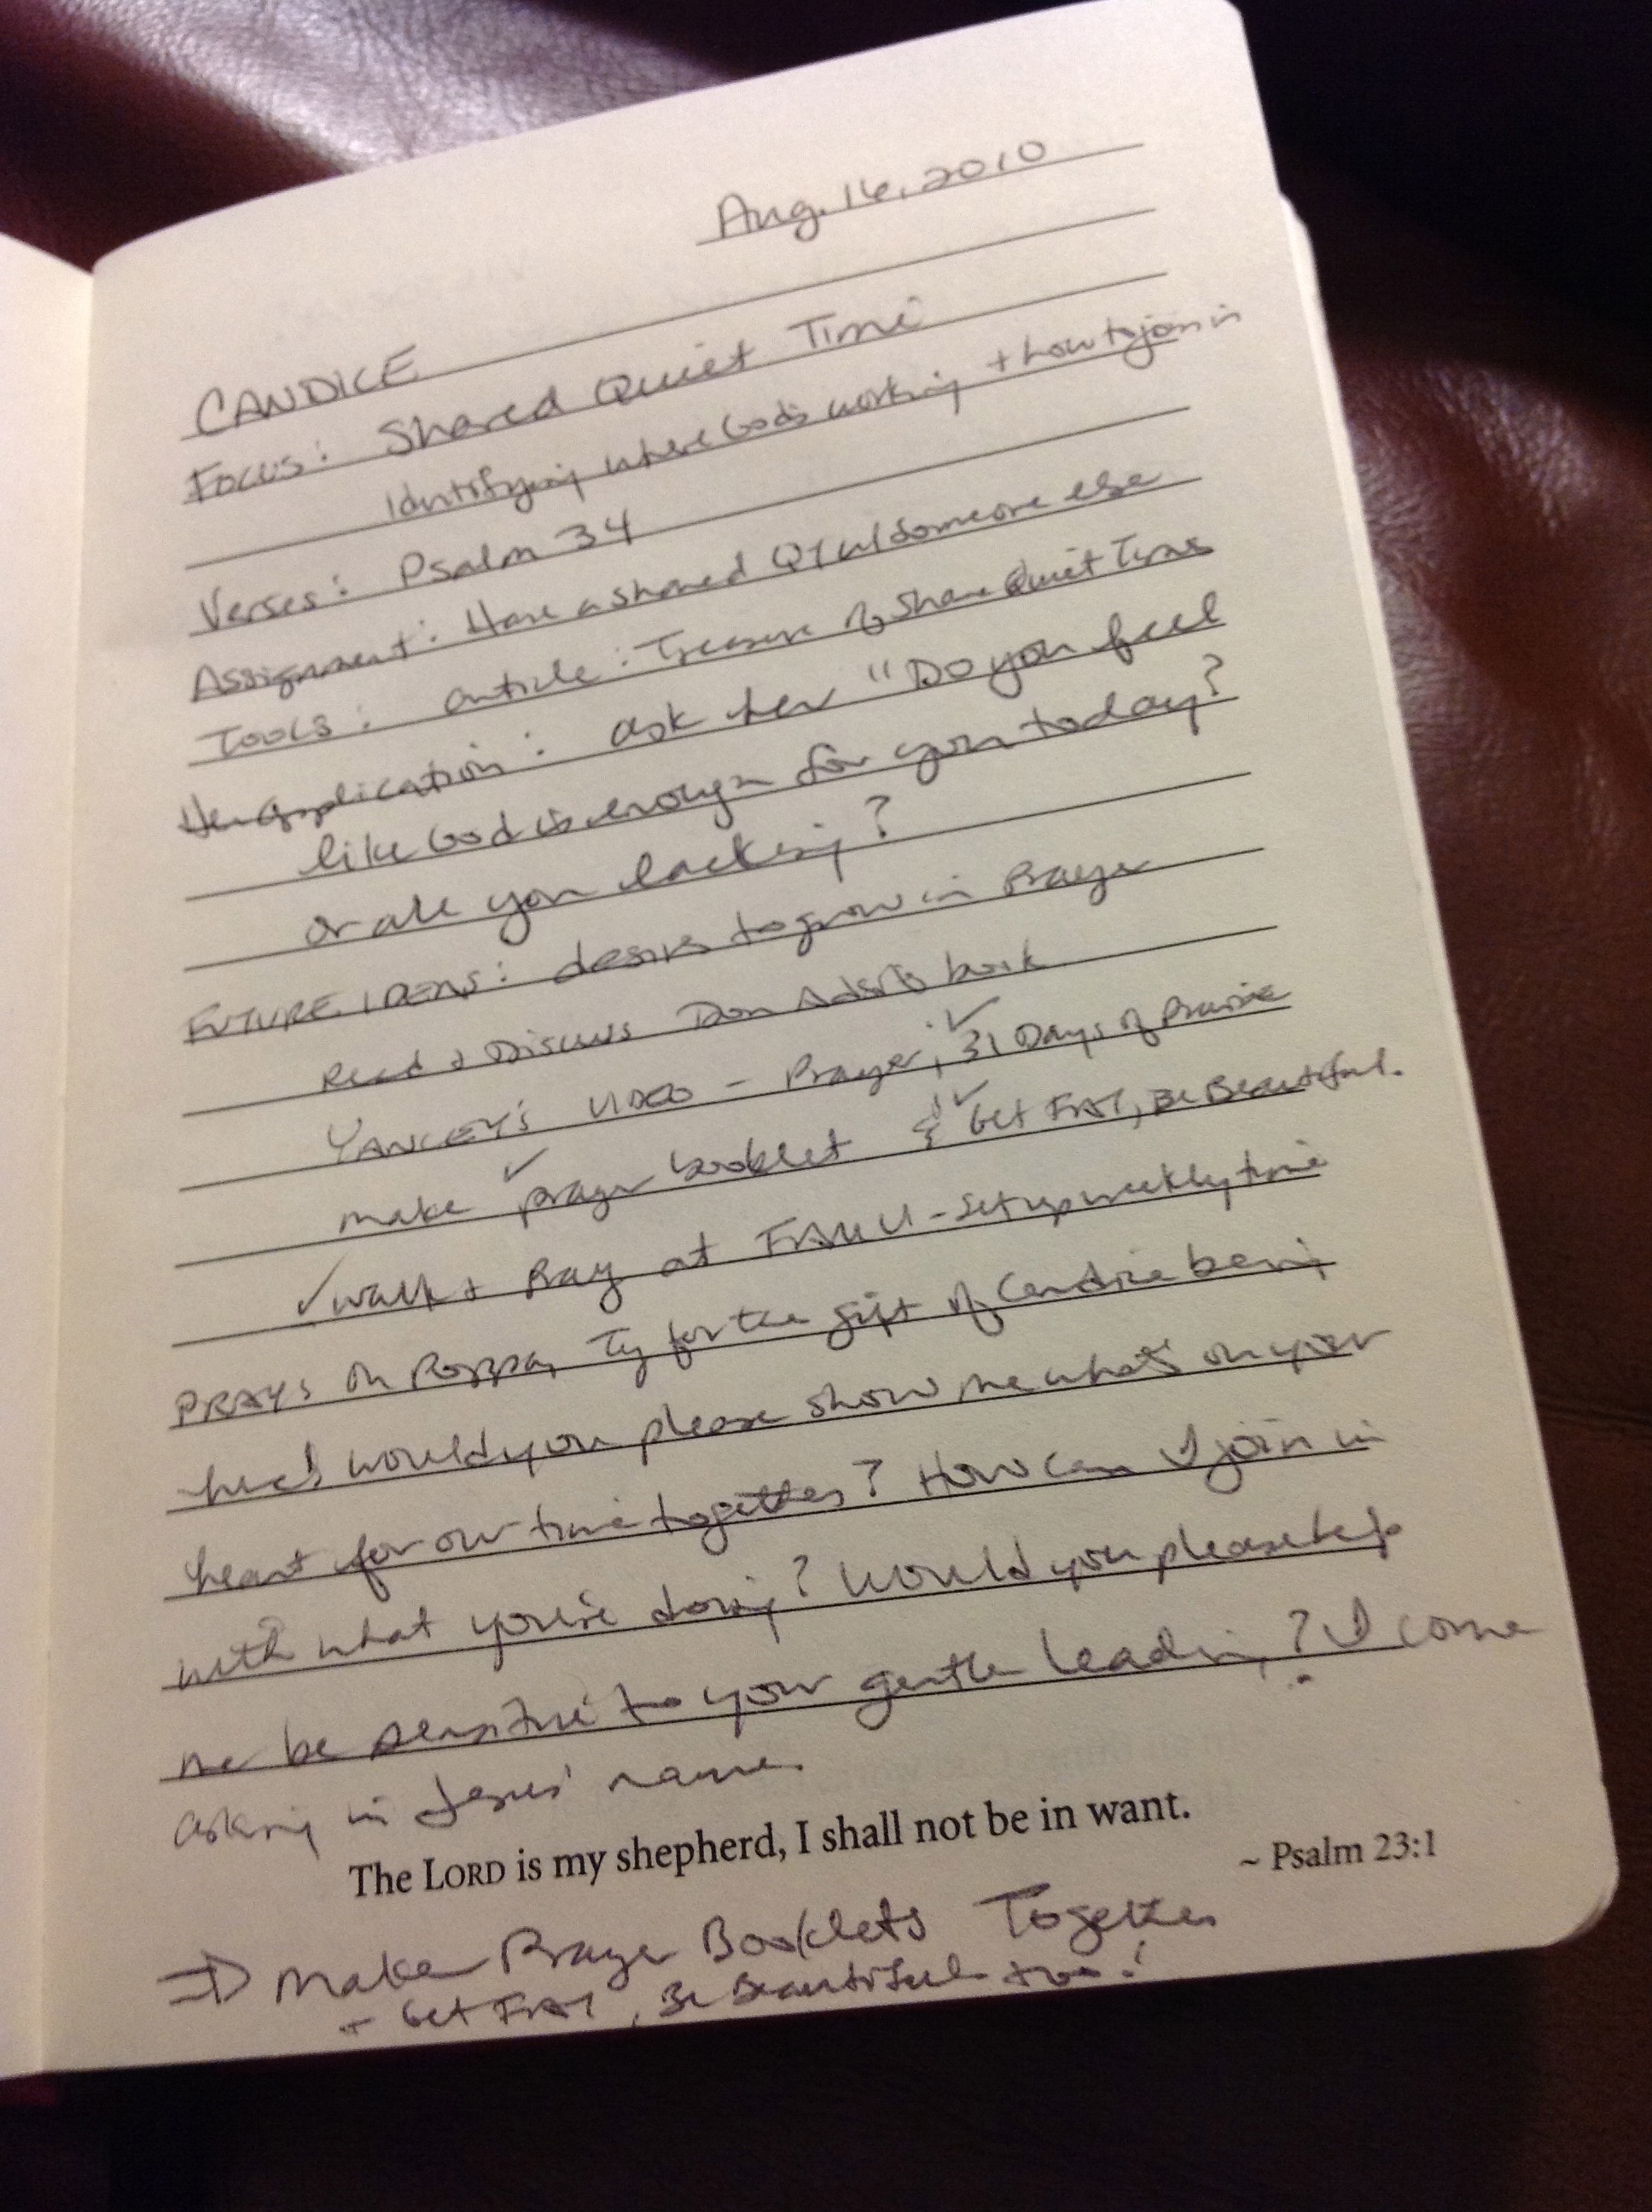 Aug. 16, 2010
CANDICE
Focus: Shared Quiet Time
Identifying where God's working + how to join in
Verses: Psalm 34
Assignment: Have a shared QT w/ someone else
Tools: article: Treasure of Share Quiet Times
Her Application: ask her "Do you feel
like God is enough for you today?
or are you lacking?
FUTURE IDEAS: desires to grow in Prayer
Read + Discuss Don book
YANCEY'S VIDEO - Prayer; ✓ 31 Days of Praise
make ✓ prayer booklet & ✓ Get FAT, Be Beautiful.
✓ walk + Pray at FAMU - set up weekly time
PRAYS Oh Poppa, Ty for the gift of Candice being
here! Would you please show me what's on your
heart for our time together? How can I join in
with what you're doing? Would you please help
me be sensitive to your gentle leading? I come
asking in Jesus' name.
The LORD is my shepherd, I shall not be in want.
~ Psalm 23:1
⇒ Make Prayer Booklets Together
+ Get FAT, Be Beautiful too!